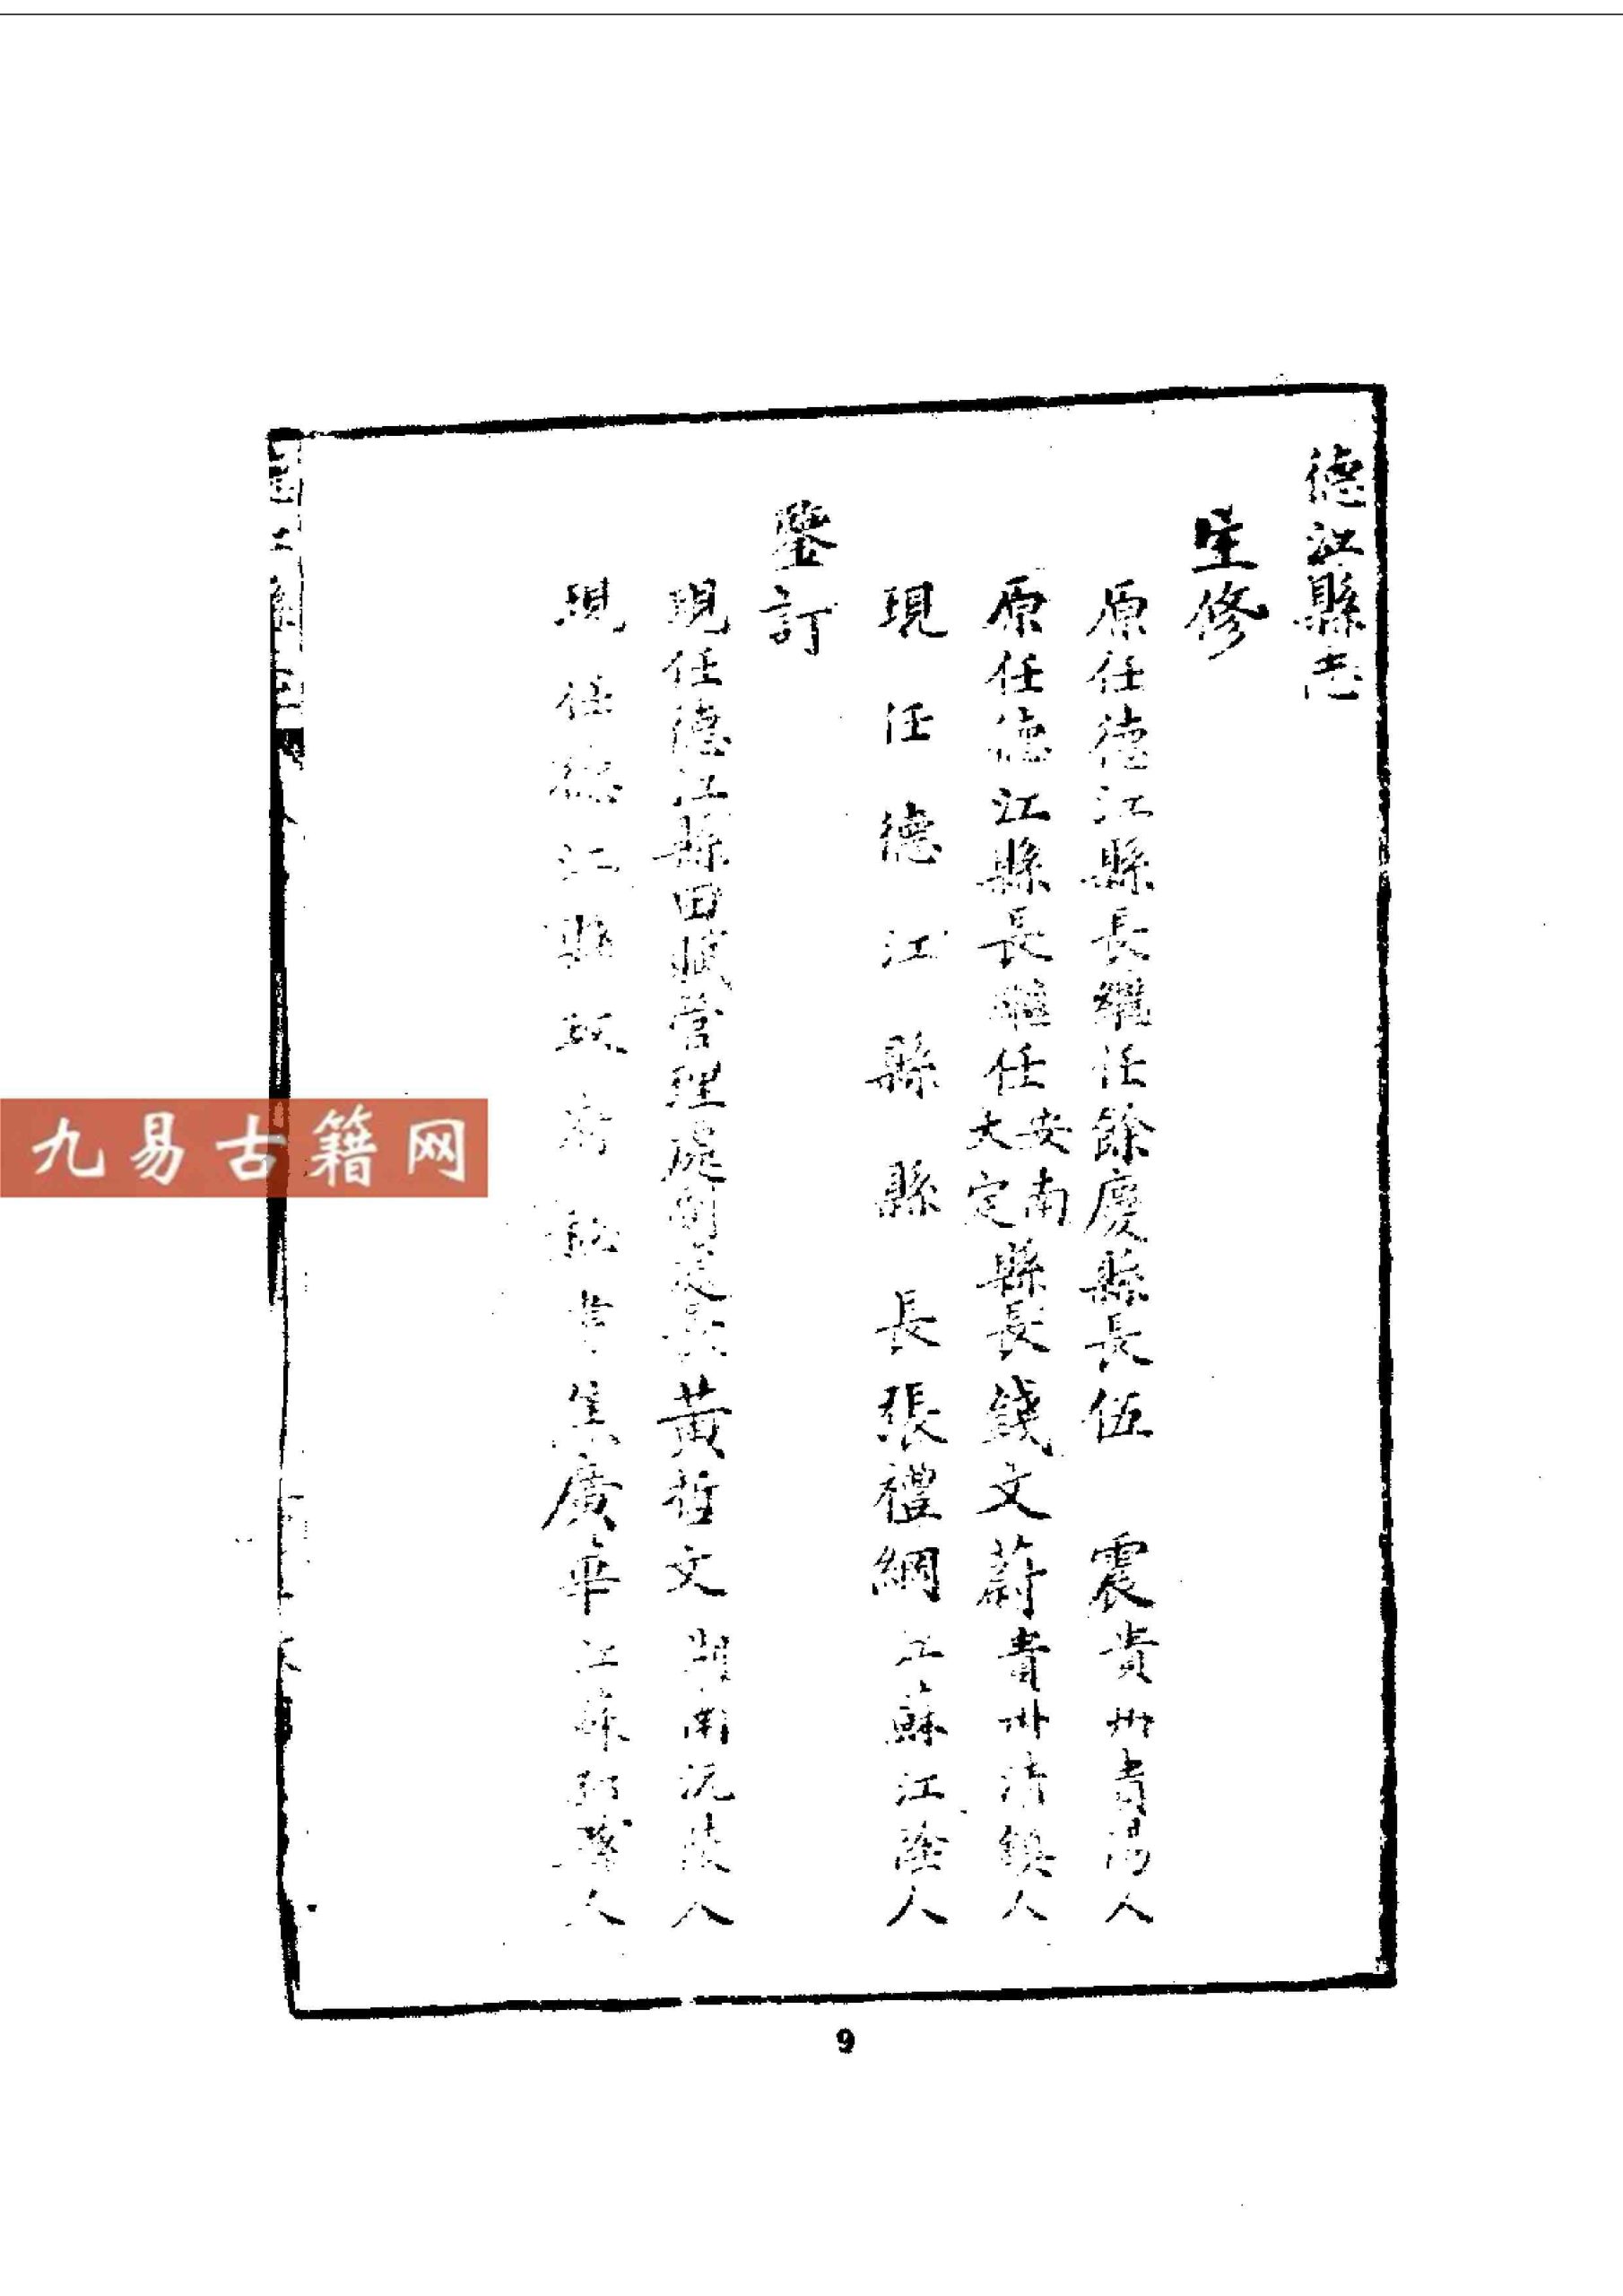 德江縣志
主修
原任德江縣長繼任餘慶縣長伍 震貴州貴陽人
原任德江縣長繼任安南大定縣長錢文蔚貴州清鎮人
現任德江縣縣長張禮綱江蘇江陰人
鑒訂
現任德江縣田賦管理處副處長黃哲文湖南沅陵人
現任德江縣政府秘書焦廣華江蘇人
九易古籍网
9